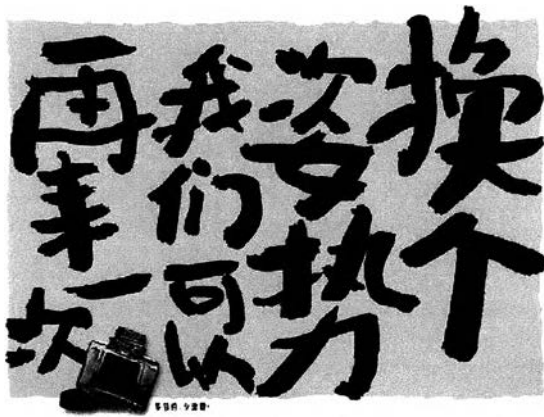 换个
姿势
我们可以
再来一次